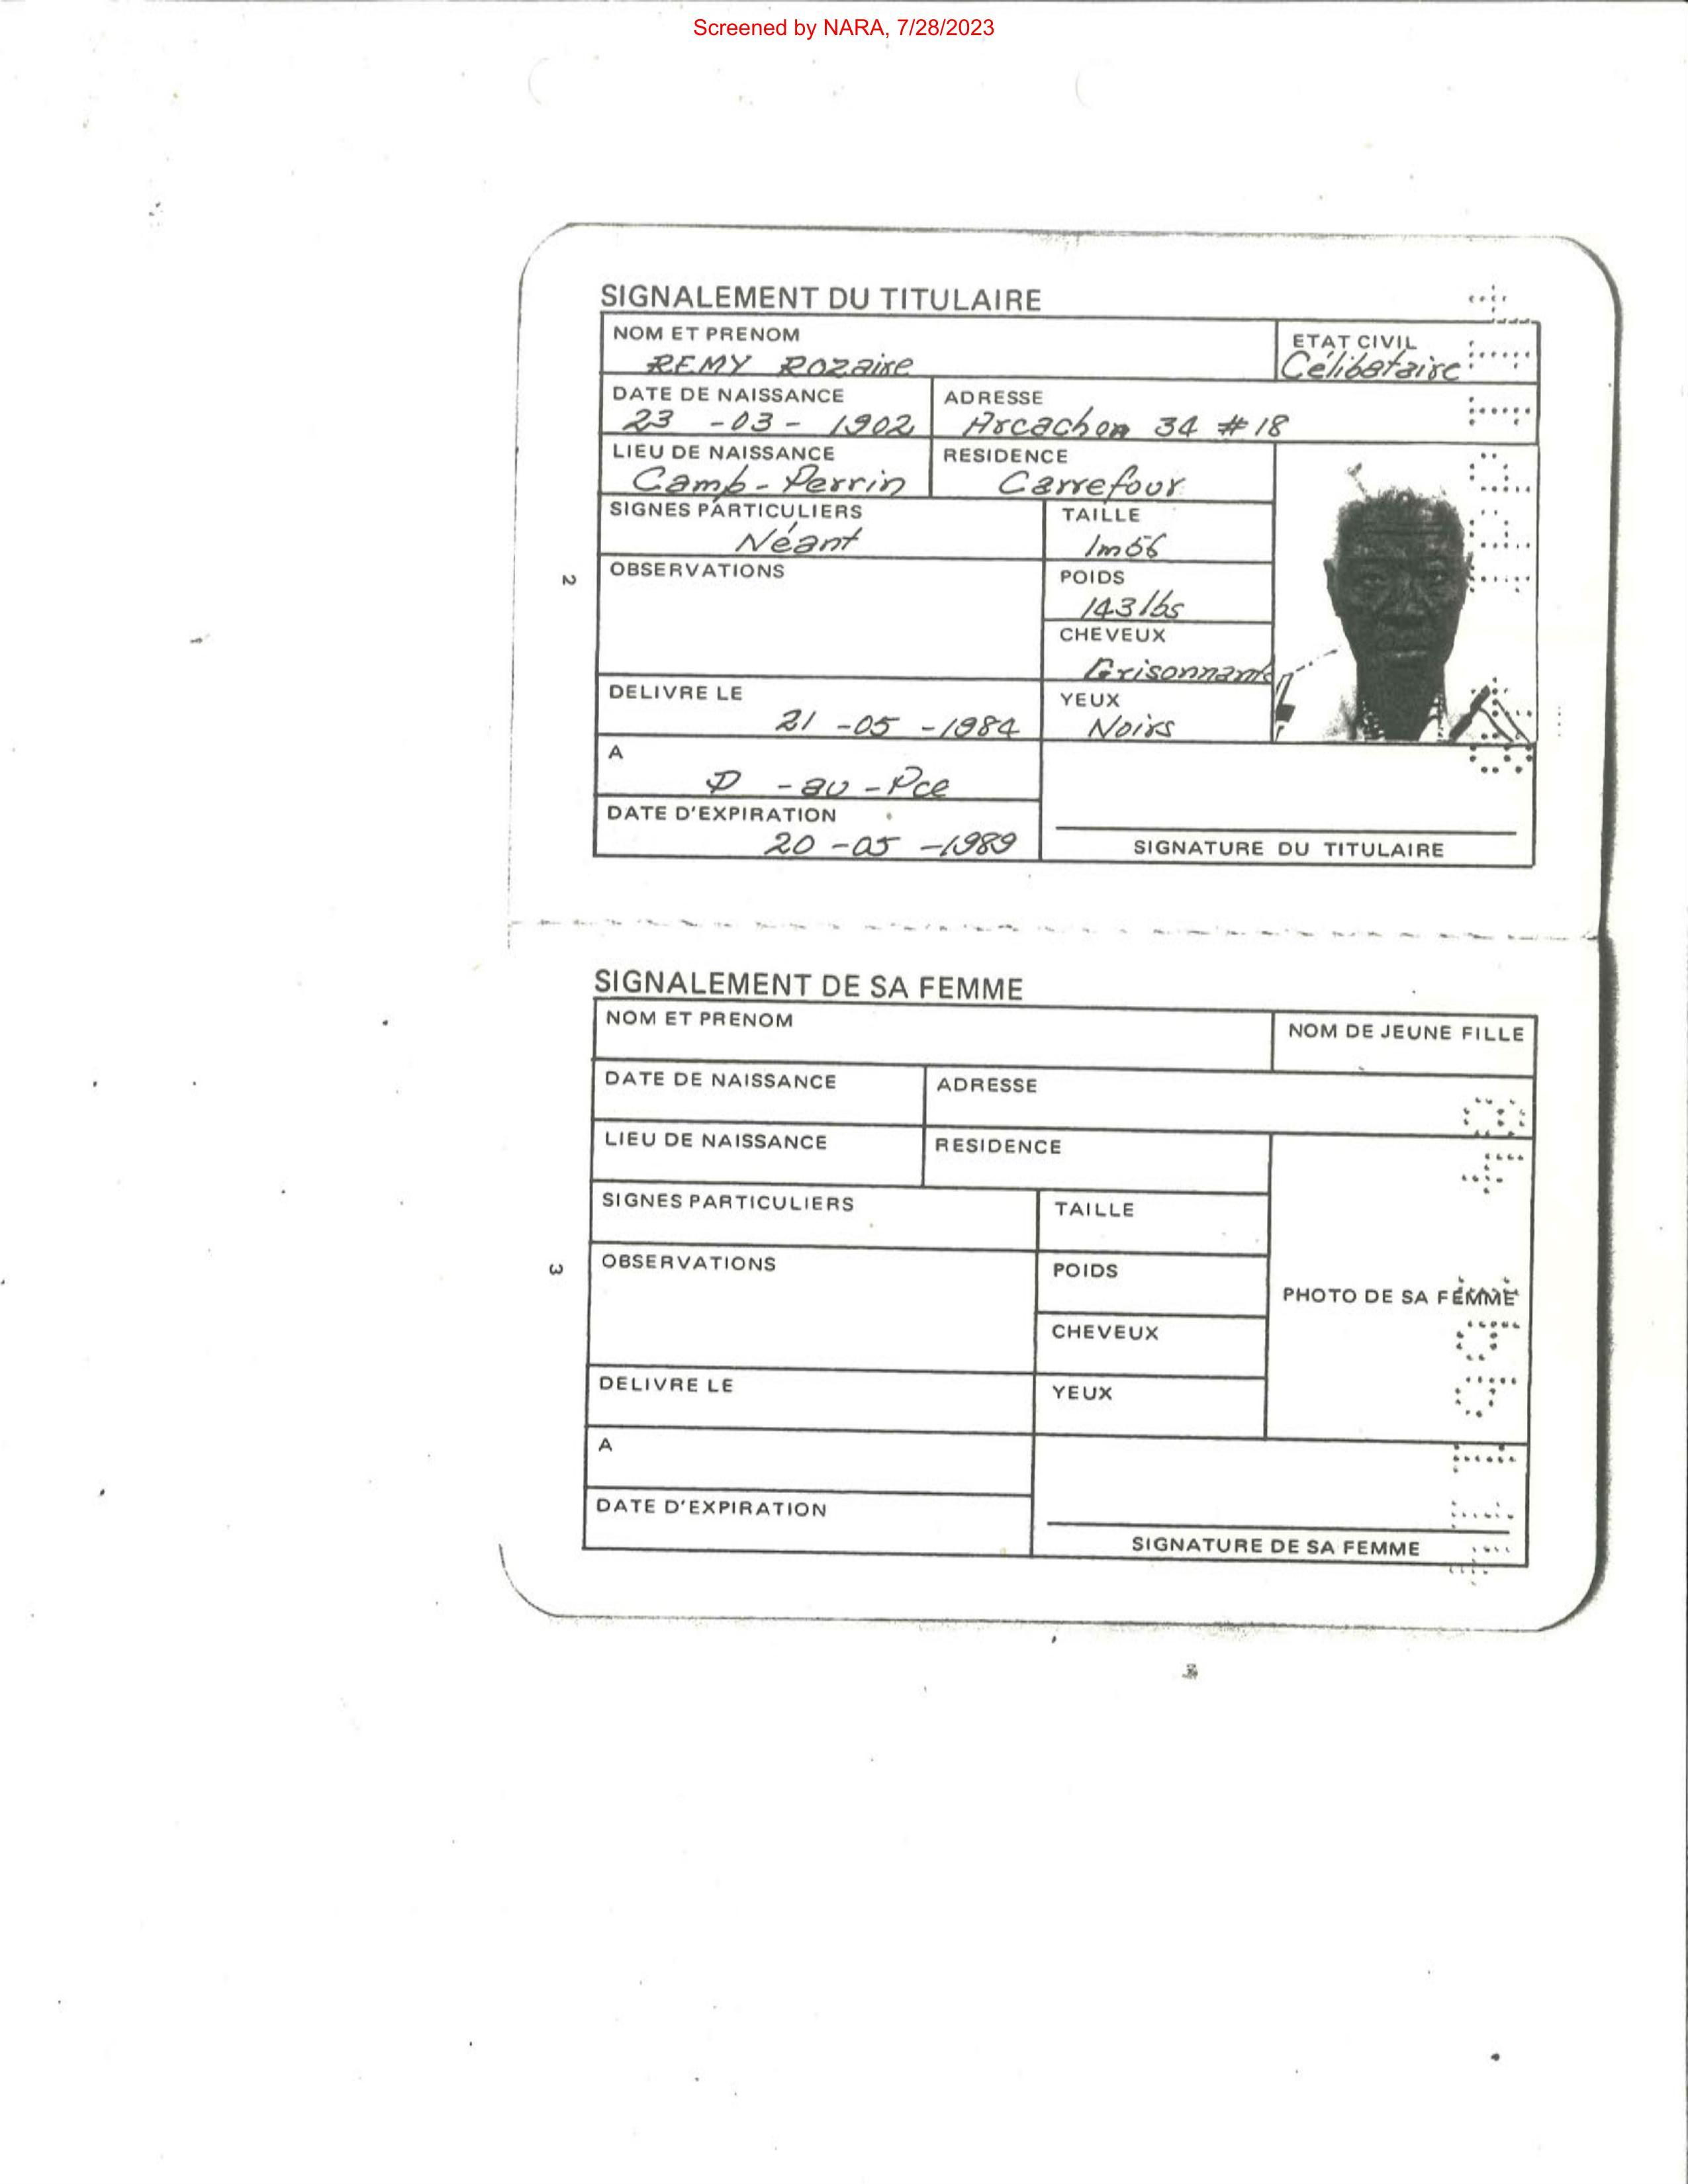 Screened by NARA, 7/28/2023
SIGNALEMENT DU TITULAIRE
NOM ET PRENOM
REMY Rozaire
ETAT CIVIL
Célibataire
DATE DE NAISSANCE
23 -03- 1902
ADRESSE
Arcachon 34 #18
LIEU DE NAISSANCE
Camp-Perrin
RESIDENCE
Carrefour
SIGNES PARTICULIERS
Néant
TAILLE
1m56
OBSERVATIONS
POIDS
143 lbs
CHEVEUX
Grisonnants
DELIVRE LE
21 -05 -1984
YEUX
Noirs
A
P -au-Pce
DATE D'EXPIRATION
20 -05 -1989
SIGNATURE DU TITULAIRE
2
SIGNALEMENT DE SA FEMME
NOM ET PRENOM
NOM DE JEUNE FILLE
DATE DE NAISSANCE
ADRESSE
LIEU DE NAISSANCE
RESIDENCE
SIGNES PARTICULIERS
TAILLE
OBSERVATIONS
POIDS
PHOTO DE SA FEMME
CHEVEUX
DELIVRE LE
YEUX
A
DATE D'EXPIRATION
SIGNATURE DE SA FEMME
3